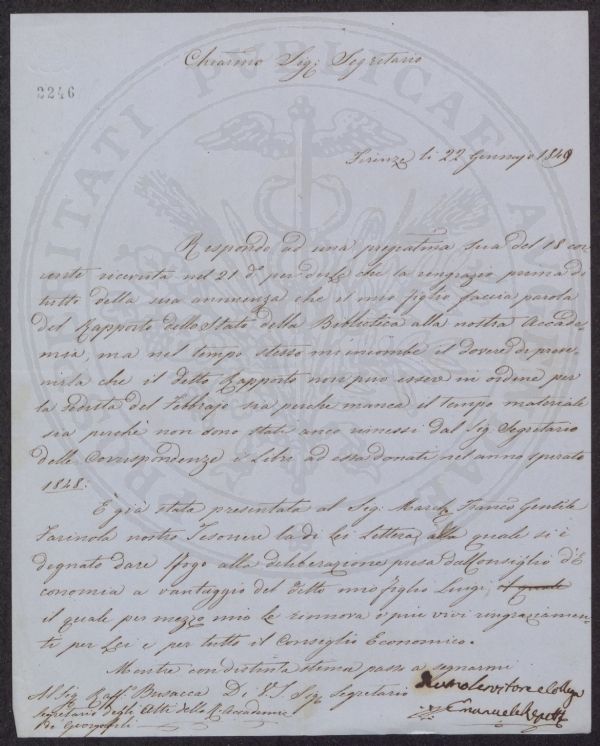 Chiarmo Sig: Segretario
2246
Firenze li 22 Gennajo 1849
Rispondo ad una pregiatma sua del 18 cor
rente ricevuta nel 21 do per dirle che la ringrazio prima di
tutto della sua annuenza che il mio figlio faccia parola
del Rapporto dello Stato della Biblioteca alla nostra Accade
mia, ma nel tempo stesso mi incombe il dovere di preve-
nirla che il detto Rapporto non può essere in ordine per
la seduta del Febbrajo sia perche manca il tempo materiale
sia perchè non sono stati anco rimessi dal Sig Segretario
delle Corrispondenze i Libri ad essa donati nel anno spirato
1848:
È già stata presentata al Sig. March Franco Gentile
Farinola nostro Tesoriere la di Lei Lettera, alla quale si è
degnato dare sfogo alla deliberazione presa dal Consiglio d'E
conomia a vantaggio del detto mio figlio Luigi, il quale
il quale per mezzo mio le rinnova i più vivi ringraziamen-
ti per Lei e per tutto il Consiglio Economico.
Mentre con distinta stima passo a segnarmi
Al Sig Raffe Busacca Di V. S Sig Segretario
Segretario degli Atti della R. Accademia
dei Georgofili
Servitore e Collega
Emanuele Repetti